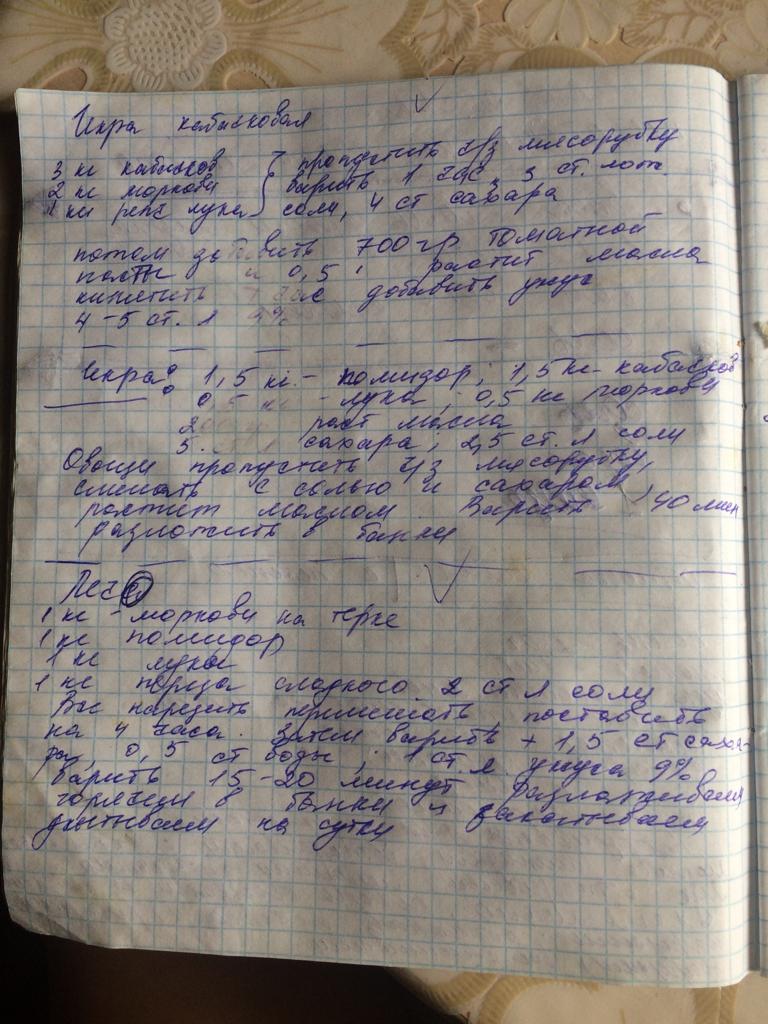 Икра кабачковая
3 кг кабачков } пропустить ч/з мясорубку
2 кг моркови } варить 1 час, 3 ст. лож.
1 кг репч лука } соли, 4 ст сахара
потом добавить 700 гр томатной
пасты и 0,5 растит масла
кипятить час добавить уксус
4-5 ст. л 9%
Икра: 1,5 кг. - помидор; 1,5 кг - кабачков
0,5 кг - лука; 0,5 кг моркови
раст масла
5. сахара; 2,5 ст. л соли
Овощи пропустить ч/з мясорубку,
смешать с солью и сахаром
растит маслом. Варить 40 мин
разложить в банки
1 кг - моркови на терке
1 кг помидор
1 кг лука
1 кг перца сладкого. 2 ст л соли
Все нарезать перемешать, поставить
на 4 часа. Затем варить + 1,5 ст саха-
ра, 0,5 ст воды, 1 ст л уксуса 9%
варить 15-20 минут. Разлаживаем
горячей в банки и закатываем
укутываем на сутки